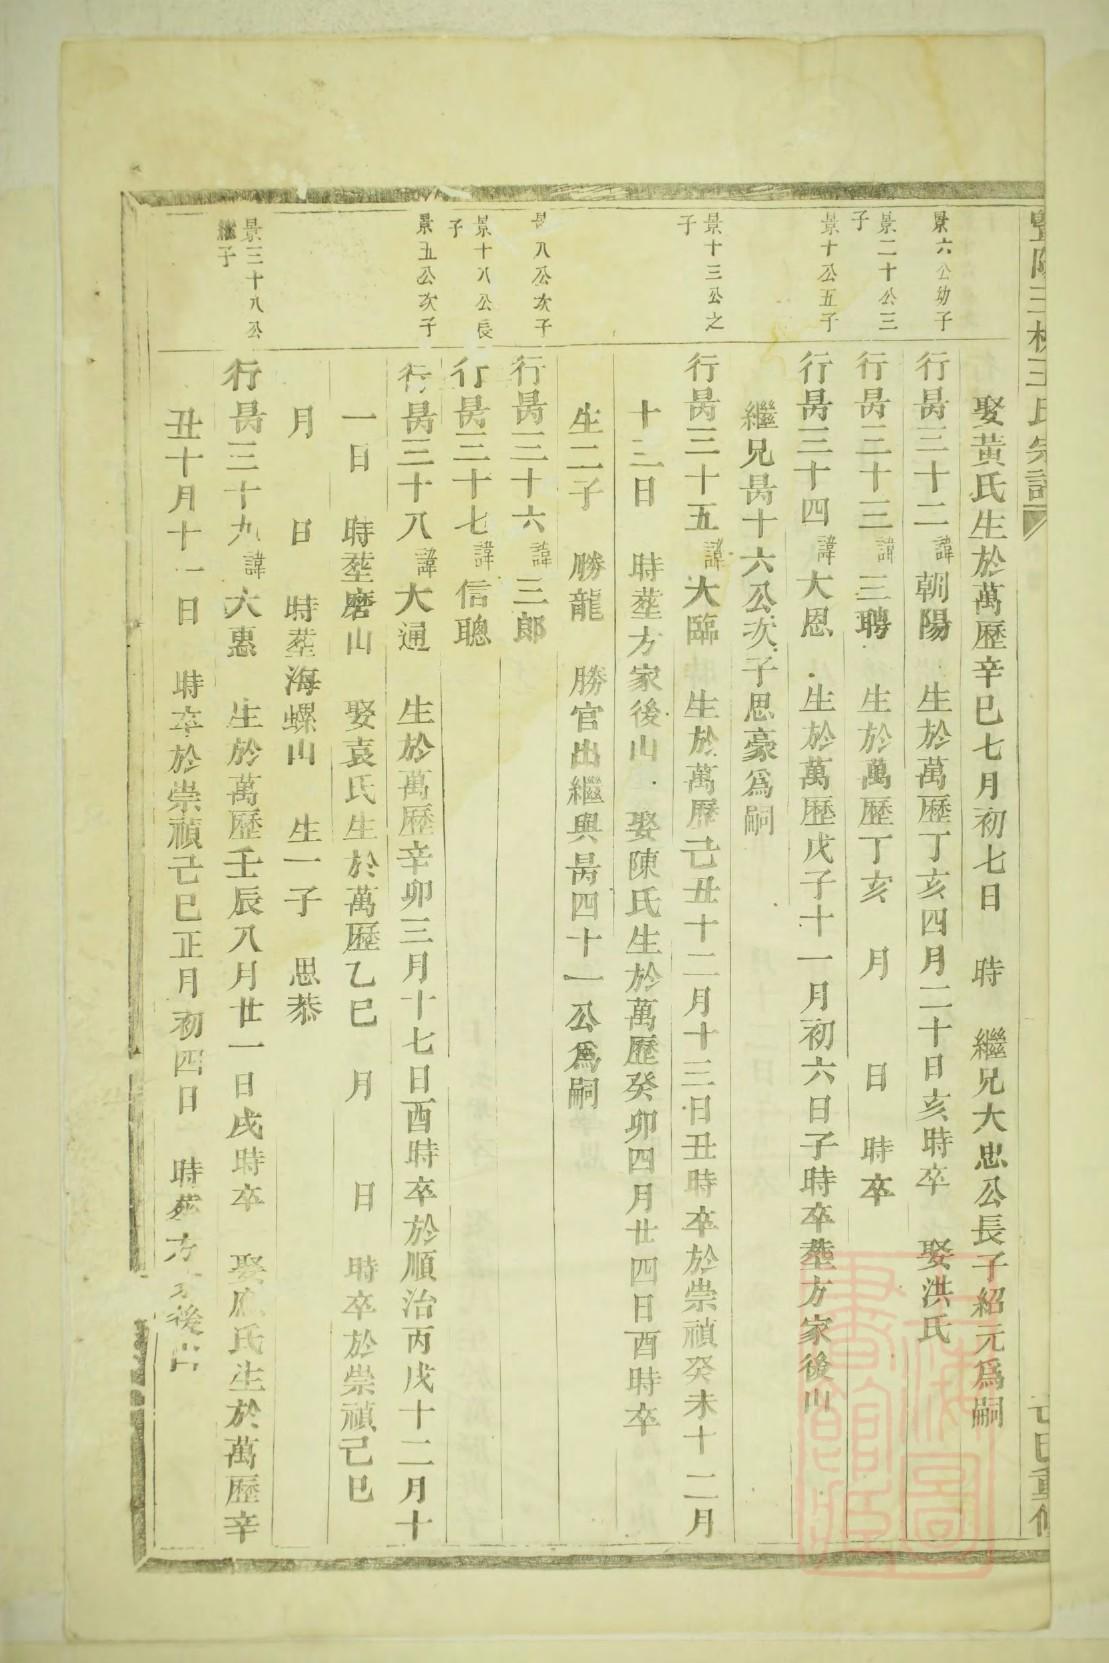 王氏宗譜
娶黃氏生於萬歷辛巳七月初七日 時 繼兄大忠公長子紹元爲嗣
景六公幼子
行昺三十二諱朝陽 生於萬歷丁亥四月二十日亥時卒 娶洪氏
景二十公三子
行昺三十三諱三聘 生於萬歷丁亥 月 日 時卒
景十公五子
行昺三十四諱大恩 生於萬歷戊子十一月初六日子時卒塟方家後山
繼兄昺十六公次子思豪爲嗣
景十三公之子
行昺三十五諱大臨 生於萬歷己丑十二月十三日丑時卒於崇禎癸未十二月
十三日 時塟方家後山 娶陳氏生於萬歷癸卯四月廿四日酉時卒
生二子 勝龍 勝官出繼與昺四十一公爲嗣
八公次子
行昺三十六諱三郎
景十八公長子
行昺三十七諱信聰
景五公次子
行昺三十八諱大通 生於萬歷辛卯三月十七日酉時卒於順治丙戌十二月十
一日 時塟磨山 娶袁氏生於萬歷乙巳 月 日 時卒於崇禎己巳
月 日 時塟海螺山 生一子 思恭
景三十八公繼子
行昺三十九諱六惠 生於萬歷壬辰八月廿一日戌時卒 娶應氏生於萬歷辛
丑十月十一日 時卒於崇禎己巳正月初四日 時塟方家後山